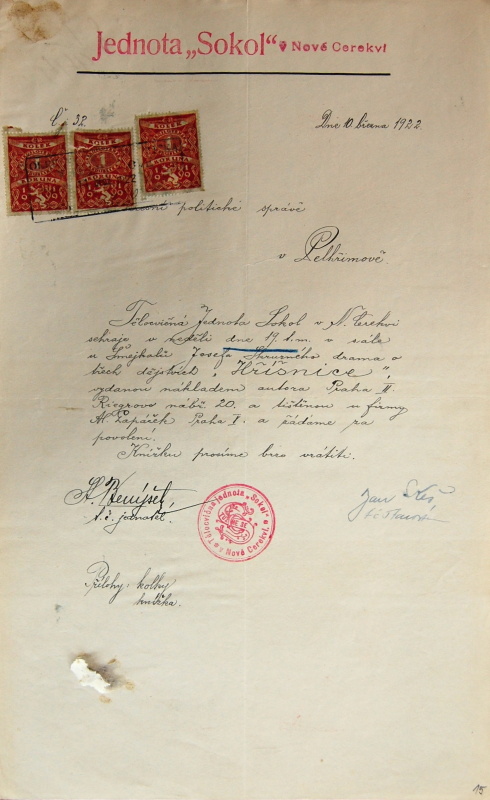 Jednota „Sokol“ v Nové Cerekvi
Č 32.
Dne 10. března 1922
KOLEK
1
KORUNA
politické správě
v Pelhřimově.
Tělocvičná Jednota Sokol v N. Cerekvi
sehraje v neděli dne 19. t. m. v sále
u Smejkalů Josefa Skružného drama o
třech dějstvích „Hříšnice“,
vydanou nákladem autora Praha II
Riegrovo nábř. 20. a tištěnou u firmy
A. Lapáček Praha I. a žádáme za
povolení.
Knížku prosíme brzo vrátiti.
t. č. jednatel.
Jan
Tělocvičná jednota „Sokol“
v Nové Cerekvi.
Přílohy: kolky
knížka.
15